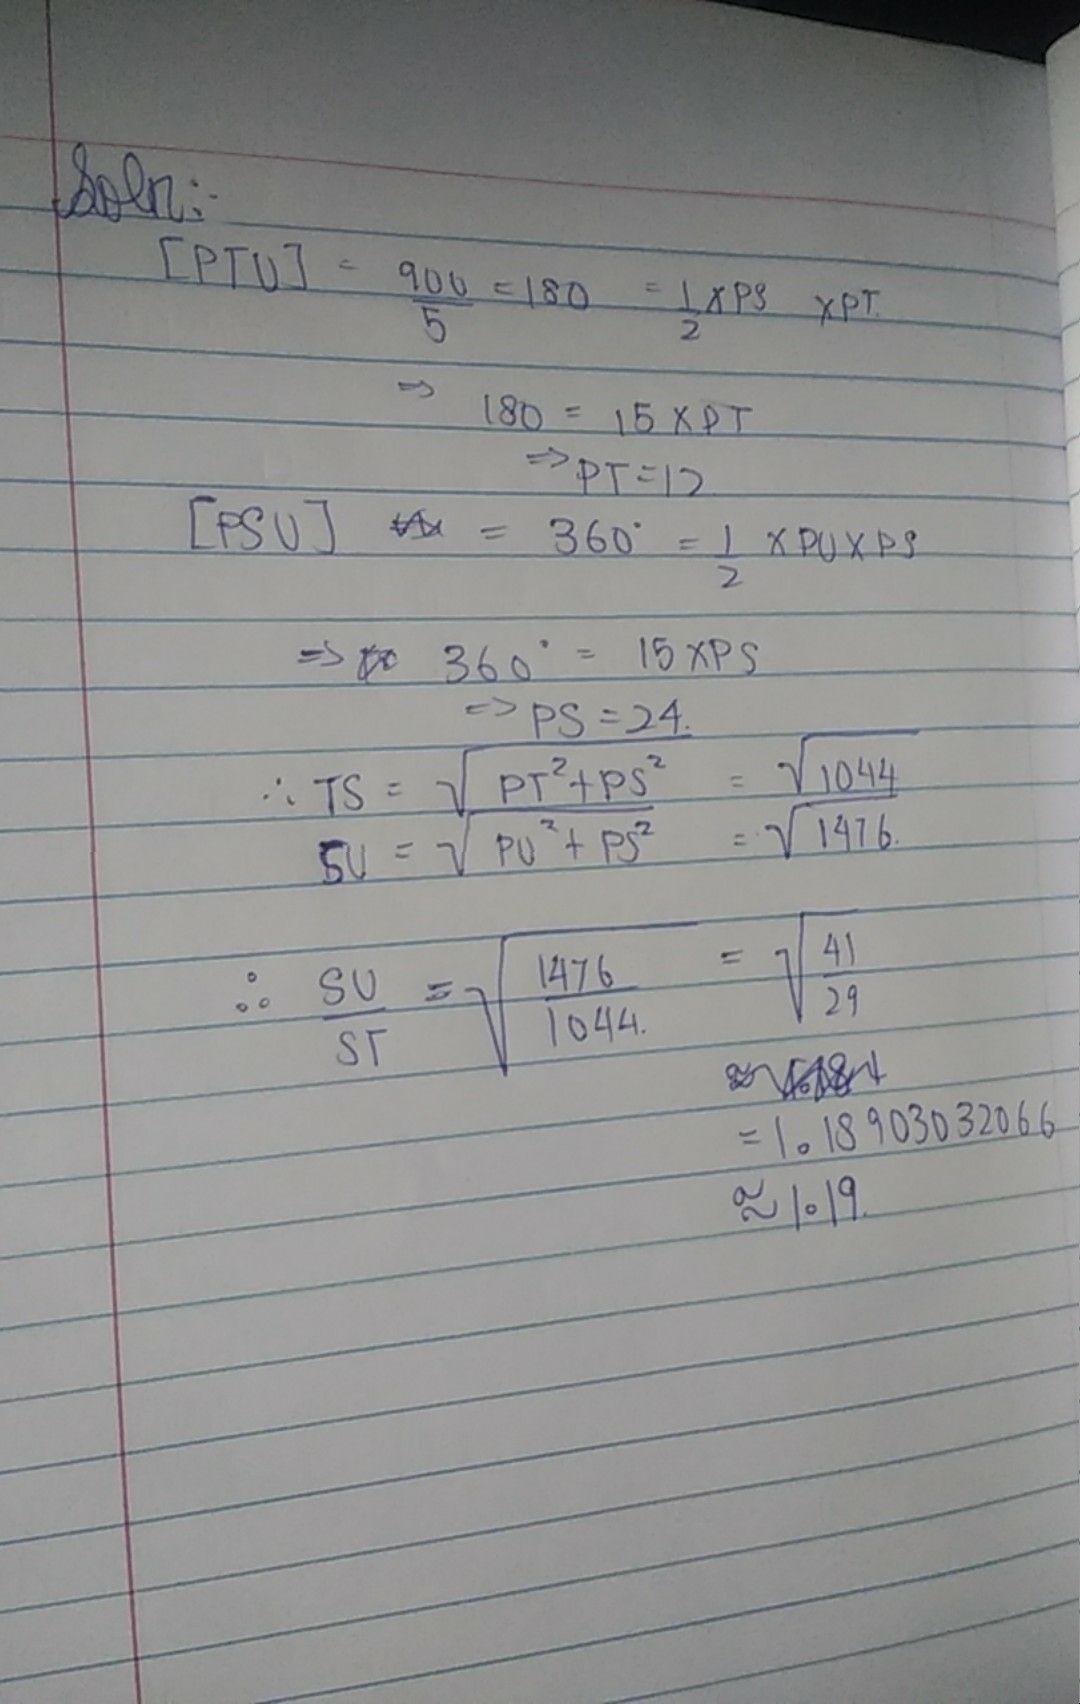 Soln:-
[PTU] = 900/5 = 180 = 1/2 x PS x PT.
=> 180 = 15 x PT
=> PT = 12
[PSU] = 360° = 1/2 x PU x PS
=> 360° = 15 x PS
=> PS = 24.
∴ TS = √(PT²+PS²) = √1044
SU = √(PU²+PS²) = √1476.
∴ SU/ST = √(1476/1044.) = √(41/29)
= 1.18903032066
≈ 1.19.